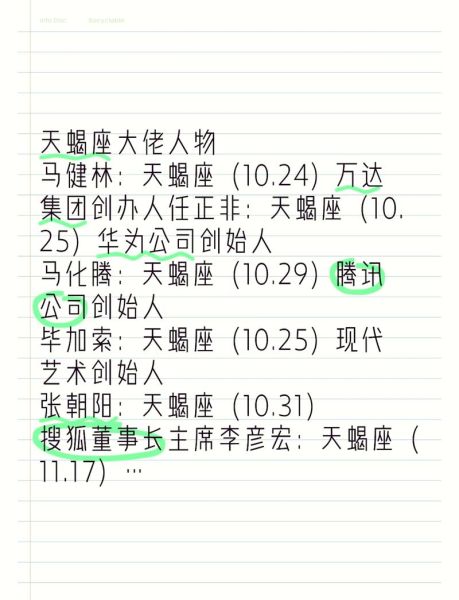 天蝎座大佬人物
马健林：天蝎座（10.24）万达
集团创办人任正非：天蝎座（10.
25）华为公司创始人
马化腾：天蝎座（10.29）腾讯
公司创始人
毕加索：天蝎座（10.25）现代
艺术创始人
张朝阳：天蝎座（10.31）
搜狐董事长主席李彦宏：天蝎座（
11.17） …